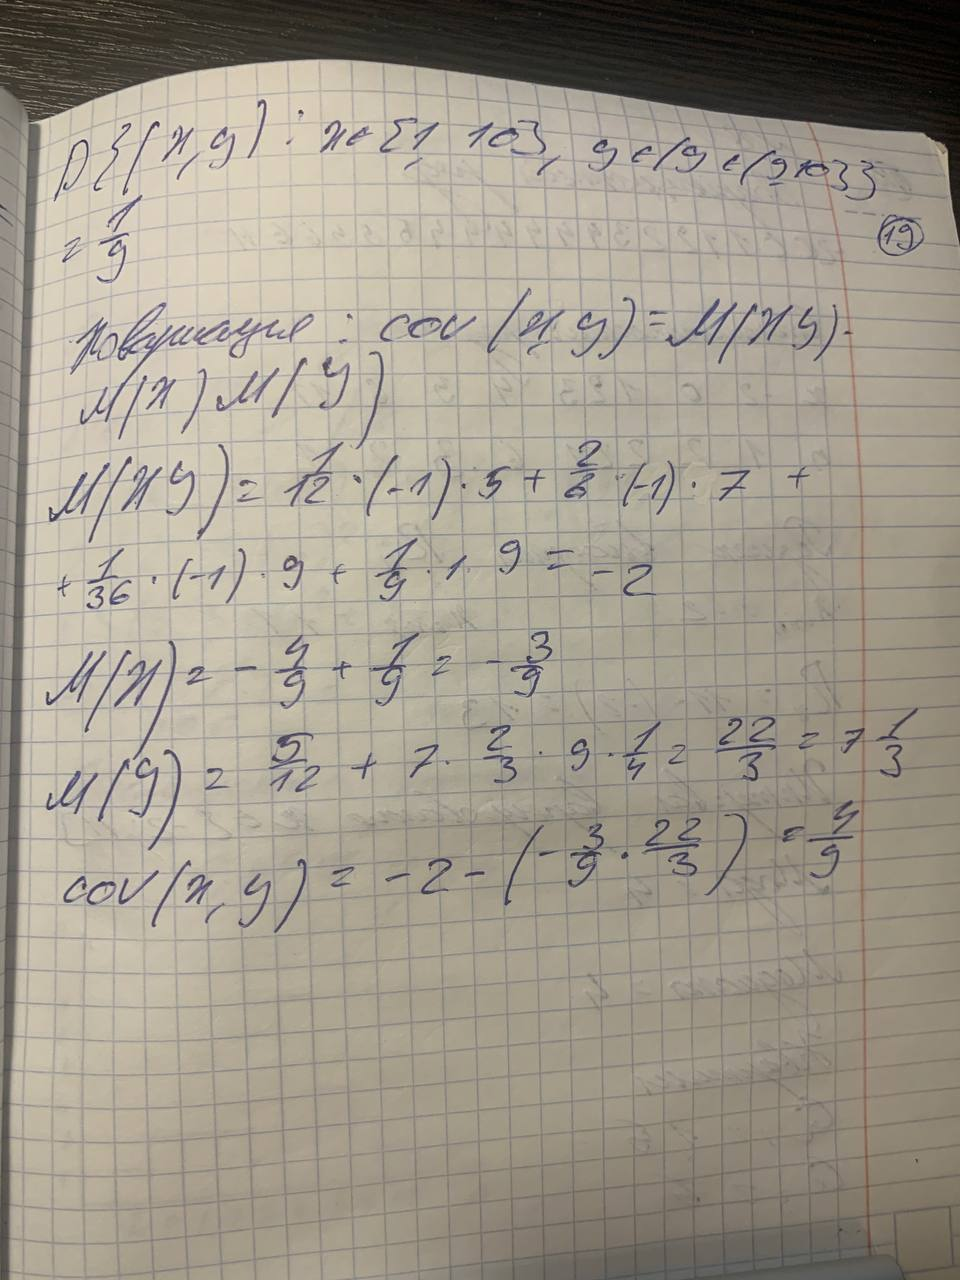 P{(x,y): x∈[1, 10], y∈(y∈(9,10)}
= 1/9
19
Ковариация: cov(x,y)=M(XY)-
M(X)M(Y)
M(XY) = 1/12·(-1)·5 + 2/6·(-1)·7 +
+ 1/36·(-1)·9 + 1/9·1·9 = -2
M(X) = -4/9 + 1/9 = -3/9
M(Y) = 5/12 + 7·2/3·9·1/4 = 22/3 = 7 1/3
cov(x,y) = -2-(-3/9·22/3) = 4/9